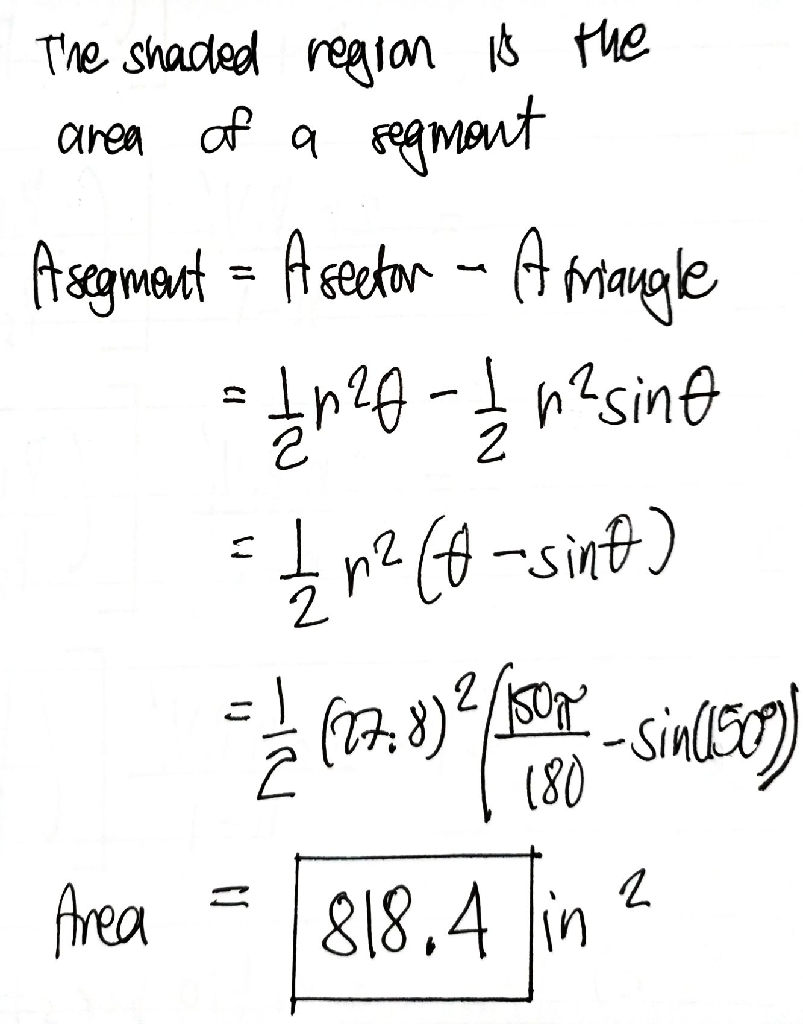 The shaded region is the
area of a segment
A segment = A sector - A triangle
= 1/2 r²θ - 1/2 r² sinθ
= 1/2 r² (θ - sinθ)
= 1/2 (27.8)² (150π/180 - sin(150°))
Area = 818.4 in²